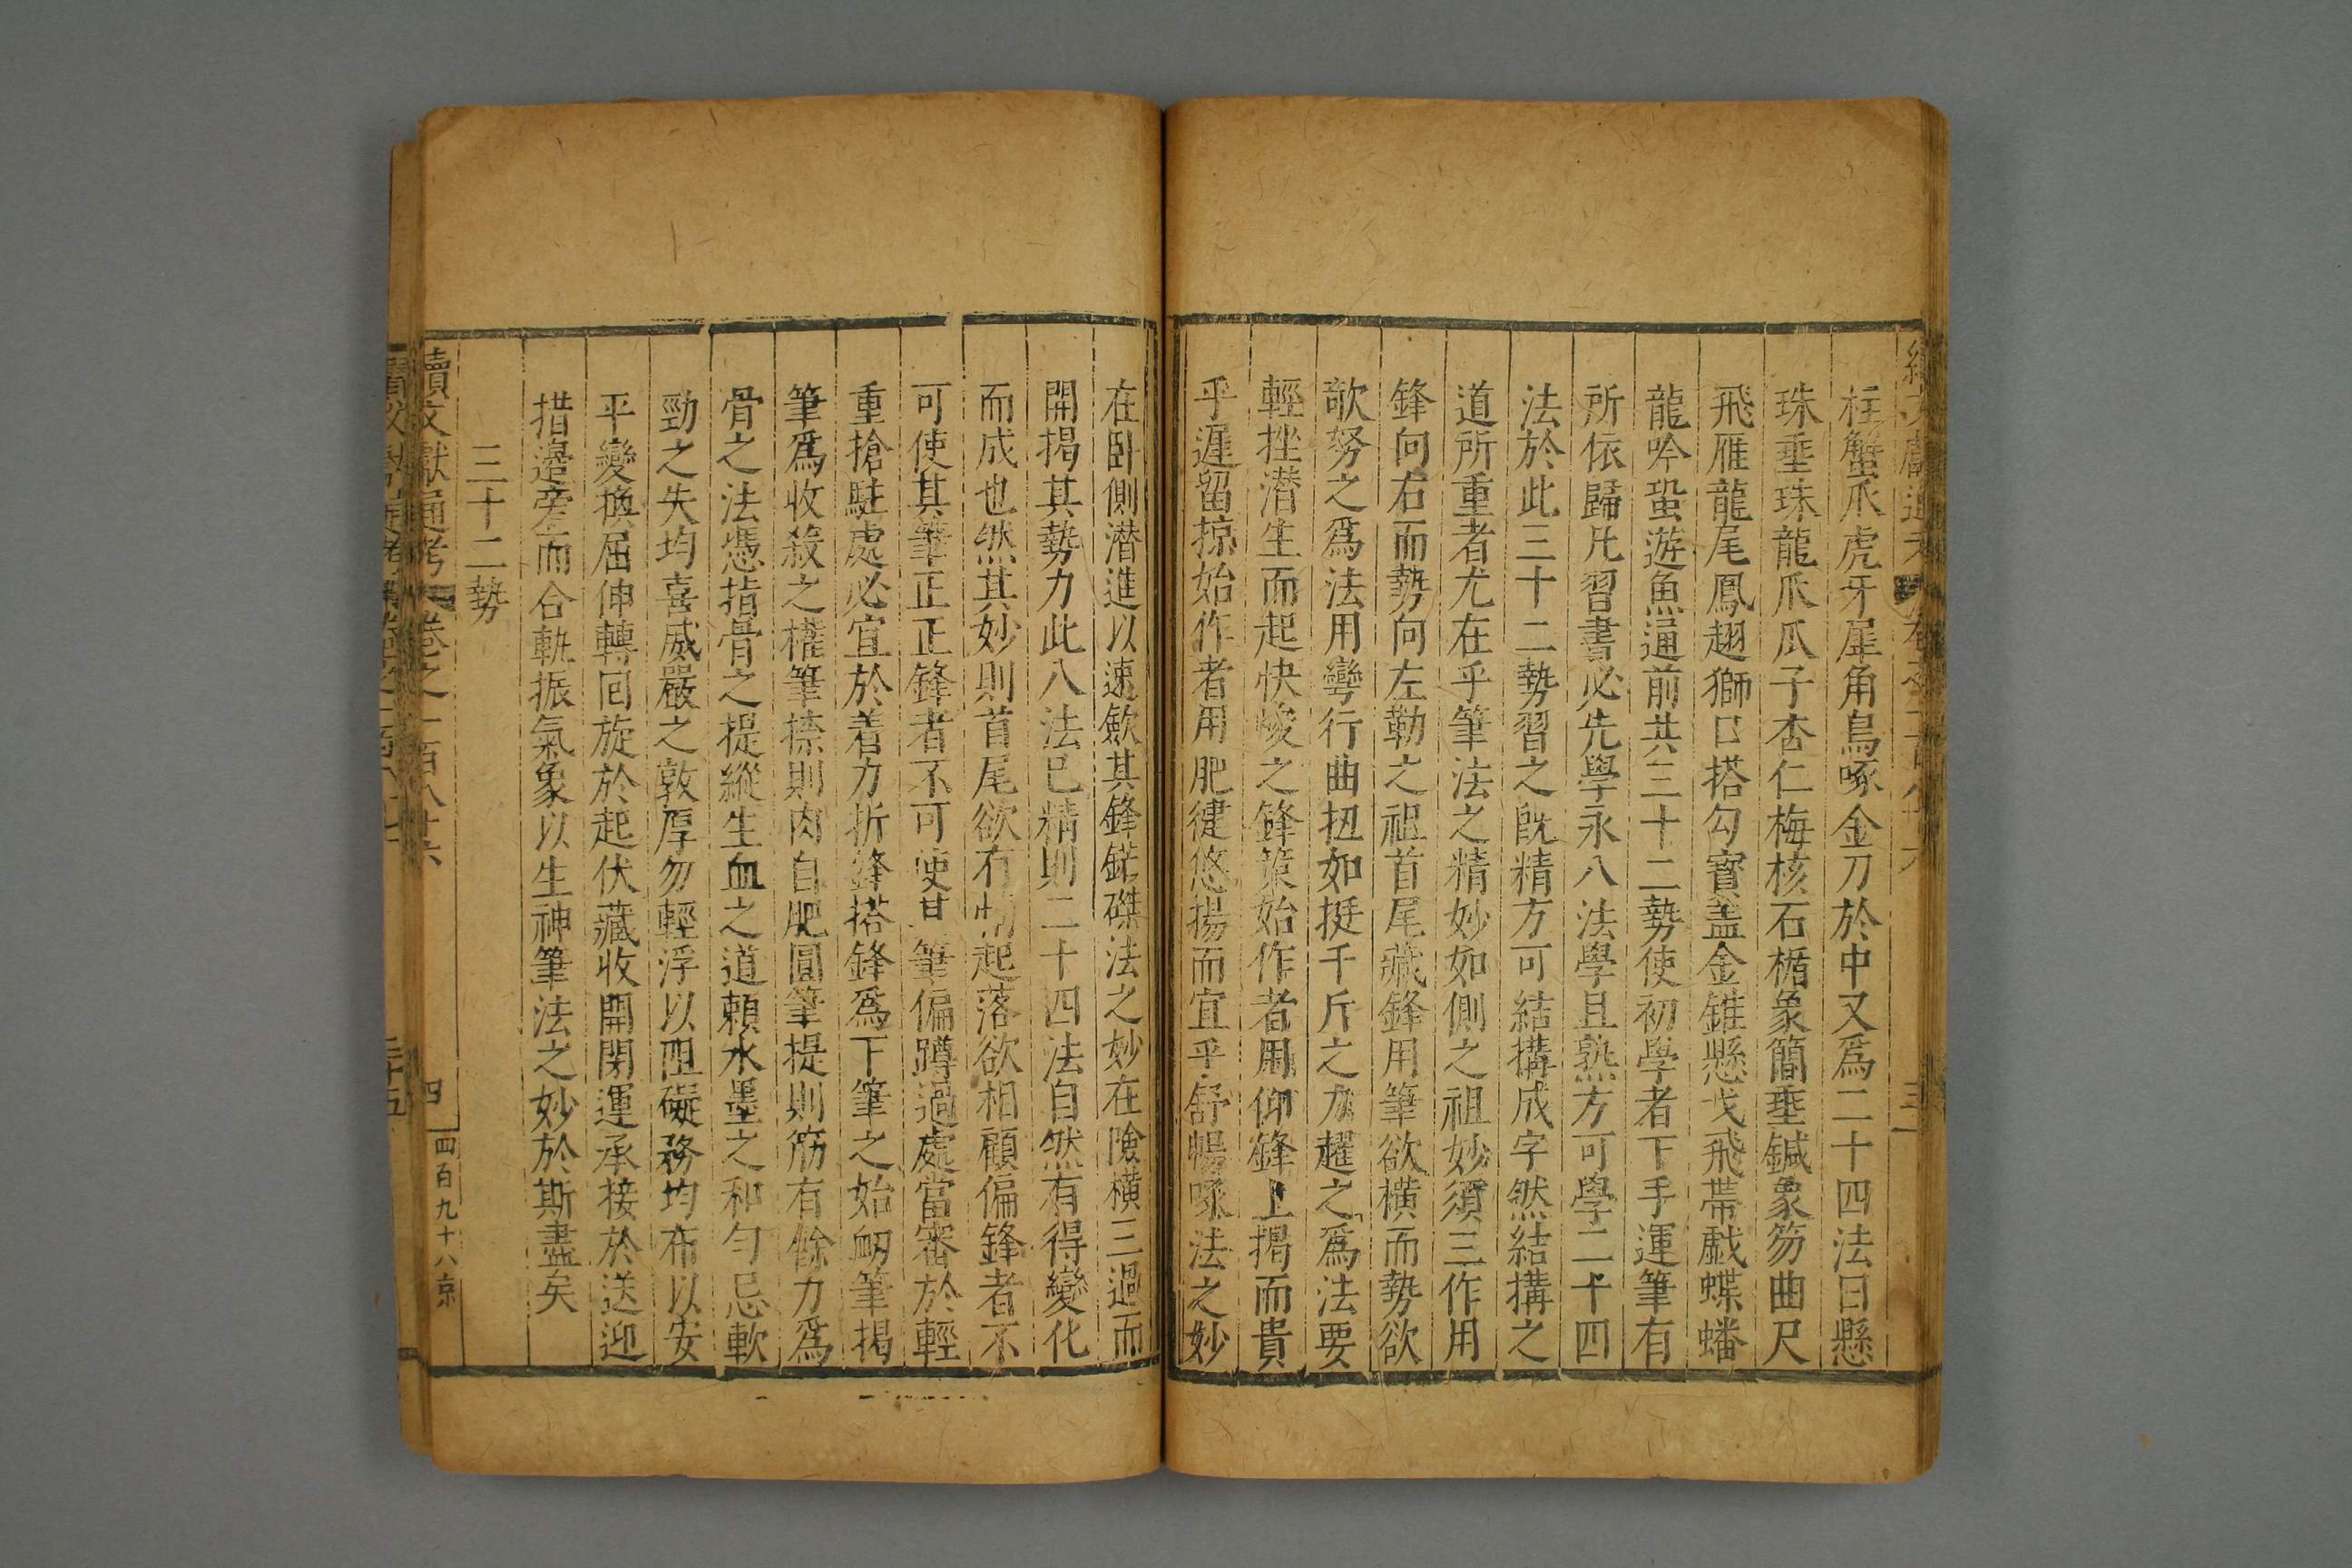 柱蟹爪虎牙犀角鳥啄金刀於中又爲二十四法曰懸
珠垂珠龍爪瓜子杏仁梅核石楯象簡垂鍼象笏曲尺
飛雁龍尾鳳翅獅口搭勾寶盖金錐懸戈飛帶戯蝶蟠
龍吟蛩遊魚通前共三十二勢使初學者下手運筆有
所依歸凡習書必先學永八法學且熟方可學二十四
法於此三十二勢習之旣精方可結搆成字然結搆之
道所重者尤在乎筆法之精妙如側之祖妙須三作用
鋒向右而勢向左勒之祖首尾藏鋒用筆欲橫而勢欲
欹努之爲法用彎行曲扭如挺千斤之力趯之爲法要
輕挫潛生而起快峻之鋒策始作者用仰鋒上揭而貴
乎遲留掠始作者用肥健悠揚而宜乎舒暢啄法之妙
在卧側潜進以速斂其鋒鋩磔法之妙在險橫三過而
開揭其勢力此八法已精則二十四法自然有得變化
而成也然其妙則首尾欲有起落欲相顧偏鋒者不
可使其筆正正鋒者不可使其筆偏蹲過處當審於輕
重搶駐處必宜於着力折鋒搭鋒爲下筆之始衂筆揭
筆爲收殺之權筆捺則肉自肥圓筆提則筋有餘力爲
骨之法憑指骨之提縱生血之道賴水墨之和勻忌軟
勁之失均喜威嚴之敦厚勿輕浮以阻礙務均布以安
平變換屈伸轉囘旋於起伏藏收開閉運承接於送迎
措邉旁而合軌振氣象以生神筆法之妙於斯盡矣
三十二勢
續文獻通考 卷之一百八十六
四
四百九十八京